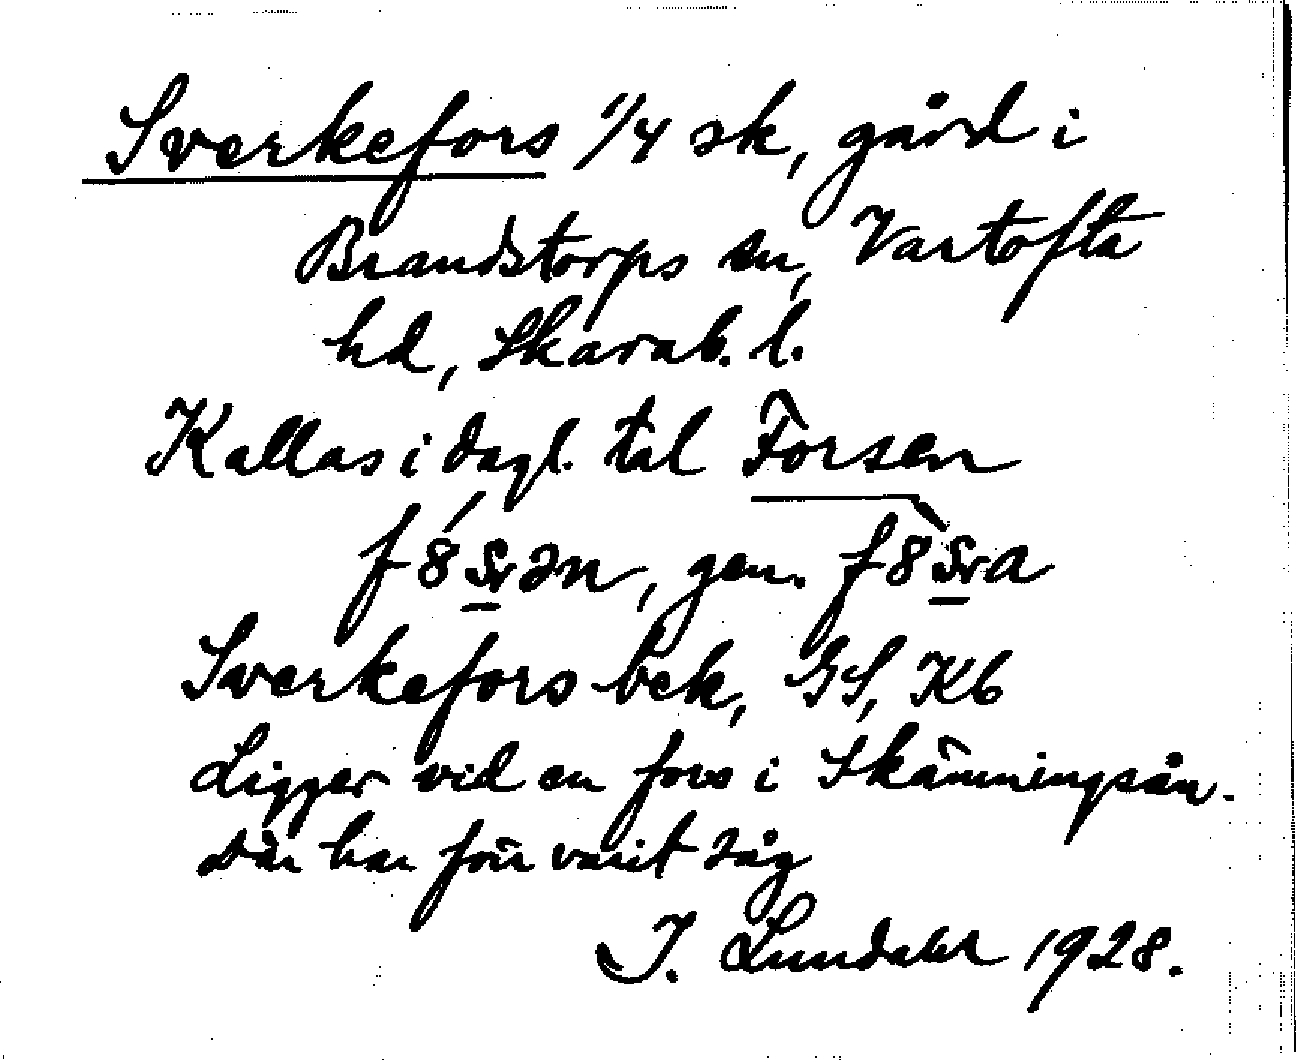 Sverkefors 1/4 sk, gård i
Brandstorps sn, Vartofta
hd, Skarab. l.
Kallas i dagl. tal Forsen
f8́srən, gen. f8̀sra
Sverkefors bek, GS, Kb
Ligger vid en fors i Skämningsån.
Där har förr varit såg
I. Lundahl 1928.